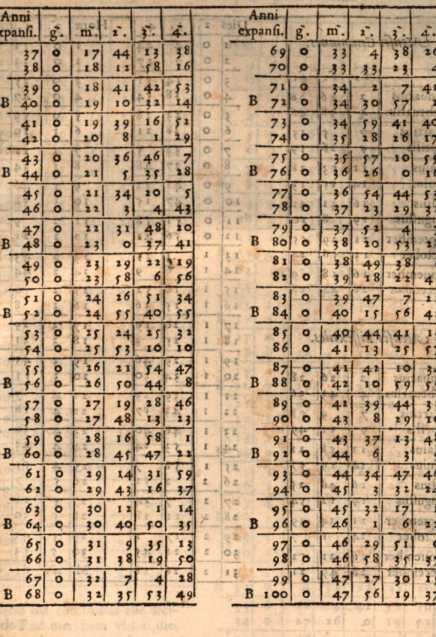 Anni
expansi. g̃. m̃. 2̃. 3̃. 4̃.
37 0 17 44 13 38
38 0 18 12 58 16
39 0 18 41 42 53
B 40 0 19 10 32 14
41 0 19 39 16 52
42 0 20 8 1 29
43 0 20 36 46 7
B 44 0 21 5 35 28
45 0 21 34 20 5
46 0 22 3 4 43
47 0 22 31 48 20
B 48 0 23 0 37 41
49 0 23 29 22 19
50 0 23 58 6 56
51 0 24 26 51 34
B 52 0 24 55 40 55
53 0 25 24 25 32
54 0 25 53 10 10
55 0 26 21 54 47
B 56 0 26 50 44 8
57 0 27 19 28 46
58 0 27 48 13 23
59 0 28 16 58 1
B 60 0 28 45 47 22
61 0 29 14 31 59
62 0 29 43 16 37
63 0 30 12 1 14
B 64 0 30 40 50 35
65 0 31 9 35 13
66 0 31 38 19 50
67 0 32 7 4 28
B 68 0 32 35 53 49
Anni
expansi. g̃. m̃. 2̃. 3̃. 4̃.
69 0 33 4 38 26
70 0 33 33 23 4
71 0 34 2 7 41
B 72 0 34 30 57
73 0 34 59 41 40
74 0 35 28 26 17
75 0 35 57 10 55
B 76 0 36 26 0 16
77 0 36 54 44
78 0 37 23 29
79 0 37 52 4
B 80 0 38 20 53
81 0 38 49 38
82 0 39 18 22
83 0 39 47 7
B 84 0 40 15 56
85 0 40 44 41
86 0 41 13 25
87 0 41 42 10
B 88 0 42 10 59
89 0 42 39 44
90 0 43 8 29
91 0 43 37 13
B 92 0 44 6 3
93 0 44 34 47
94 0 45 3 32
95 0 45 32 17
B 96 0 46 1 6
97 0 46 29 51
98 0 46 58 35
99 0 47 27 30
B 100 0 47 56 19 37